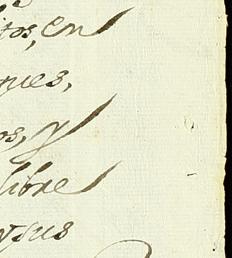 tos, en
ques,
os, y
libre
sus